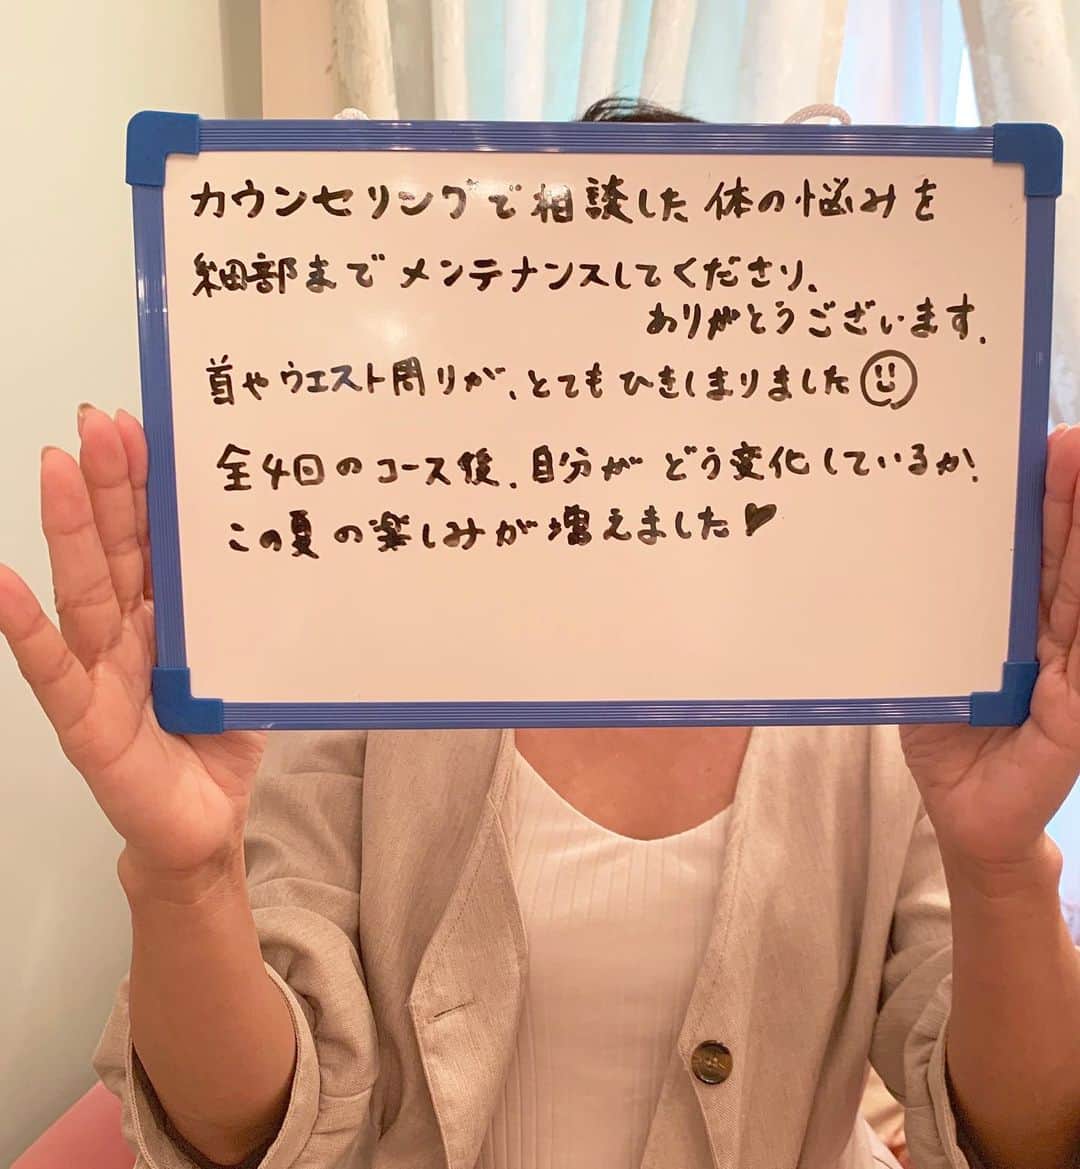 カウンセリングで相談した体の悩みを
細部までメンテナンスしてくださり、
ありがとうございます。
首やウエスト周りが、とてもひきしまりました
全4回のコース後、自分がどう変化しているか!
この夏の楽しみが増えました♥